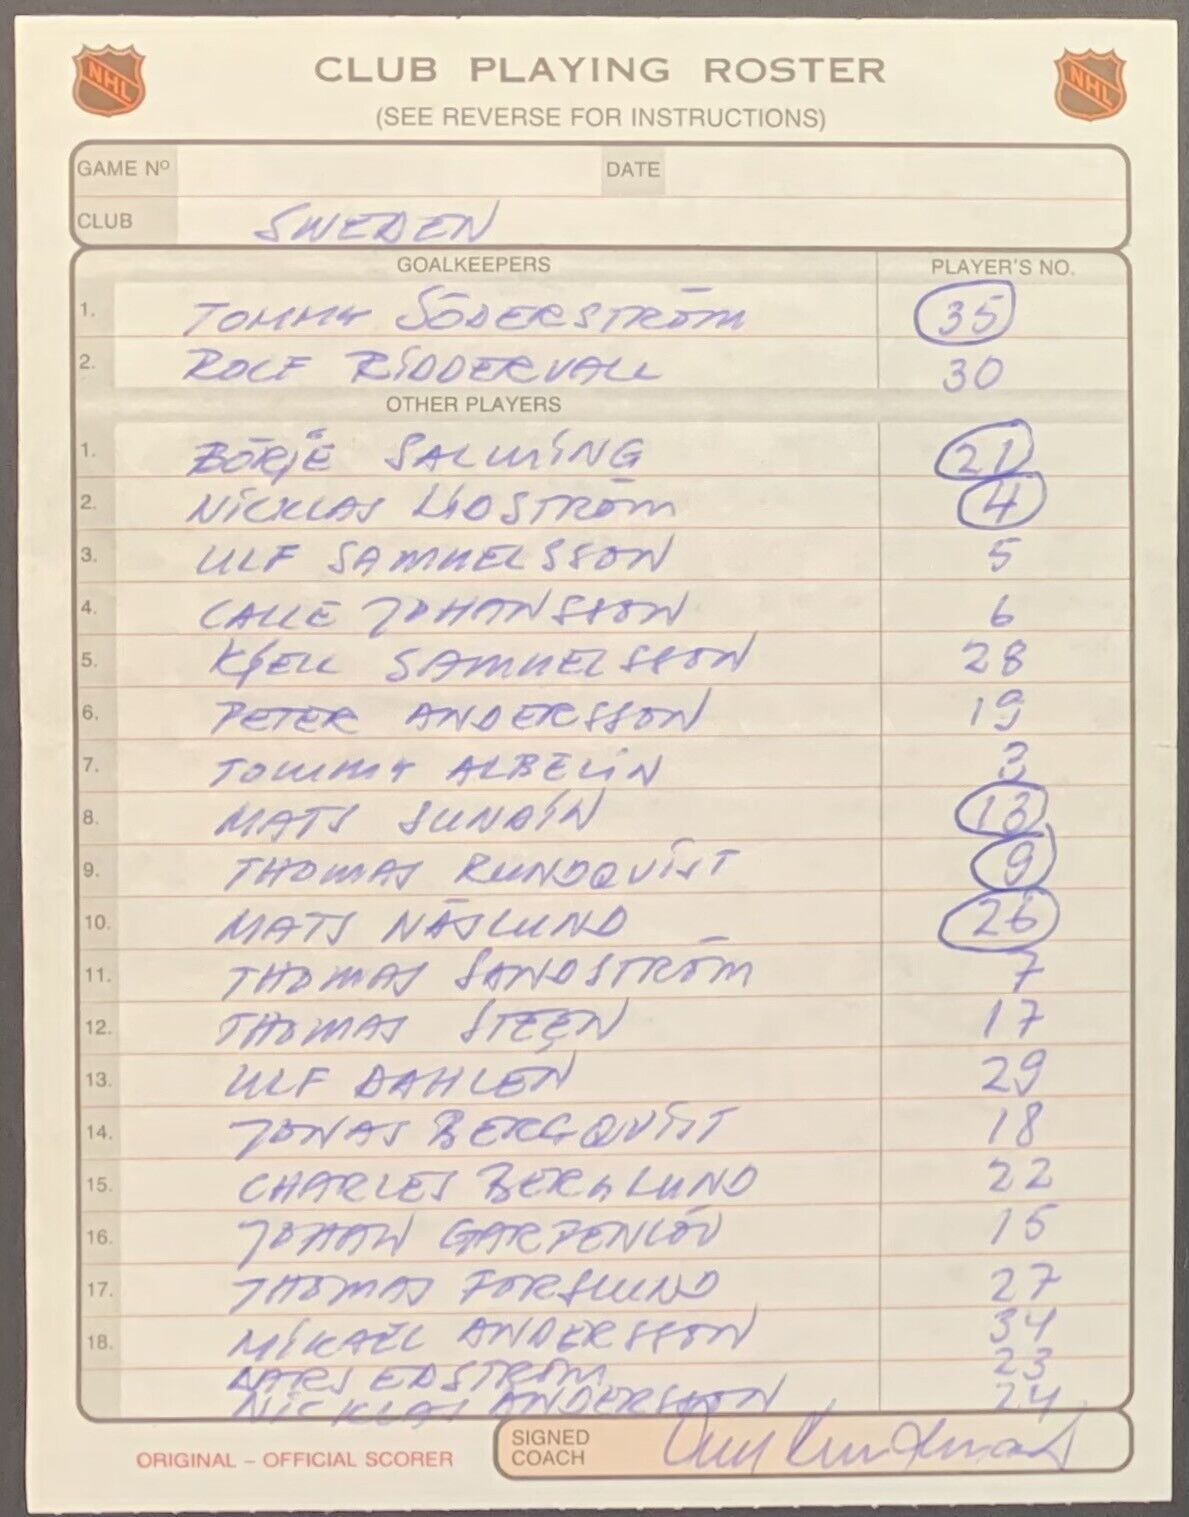 NHL CLUB PLAYING ROSTER NHL
(SEE REVERSE FOR INSTRUCTIONS)
GAME Nº DATE
CLUB SWEDEN
GOALKEEPERS PLAYER'S NO.
1. TOMMY SÖDERSTRÖM 35
2. ROLF RIDDERVALL 30
OTHER PLAYERS
1. BÖRJE SALMING 21
2. NICKLAS LIDSTRÖM 4
3. ULF SAMUELSSON 5
4. CALLE JOHANSSON 6
5. KJELL SAMUELSSON 28
6. PETER ANDERSSON 19
7. TOMMY ALBELIN 3
8. MATS SUNDIN 13
9. THOMAS RUNDQVIST 9
10. MATS NÄSLUND 26
11. THOMAS SANDSTRÖM 7
12. THOMAS STEEN 17
13. ULF DAHLEN 29
14. JONAS BERGQVIST 18
15. CHARLES BERGLUND 22
16. JOHAN GARPENLÖV 15
17. THOMAS FORSLUND 27
18. MIKAEL ANDERSSON 34
LARS EDSTRÖM 23
NICKLAS ANDERSSON 24
ORIGINAL – OFFICIAL SCORER
SIGNED
COACH